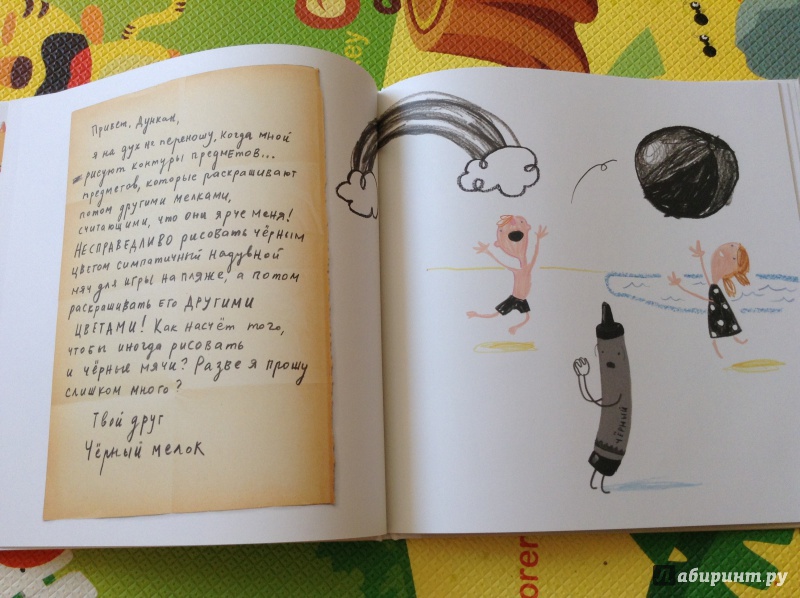 Привет, Дункан,
я на дух не переношу, когда мной
рисуют контуры предметов...
предметов, которые раскрашивают
потом другими мелками,
считающими, что они ярче меня!
НЕСПРАВЕДЛИВО рисовать чёрным
цветом симпатичный надувной
мяч для игры на пляже, а потом
раскрашивать его ДРУГИМИ
ЦВЕТАМИ! Как насчёт того,
чтобы иногда рисовать
и чёрные мячи? Разве я прошу
слишком много?
Твой друг
Чёрный мелок
чёрный
key
orer
orer
Лабиринт.ру